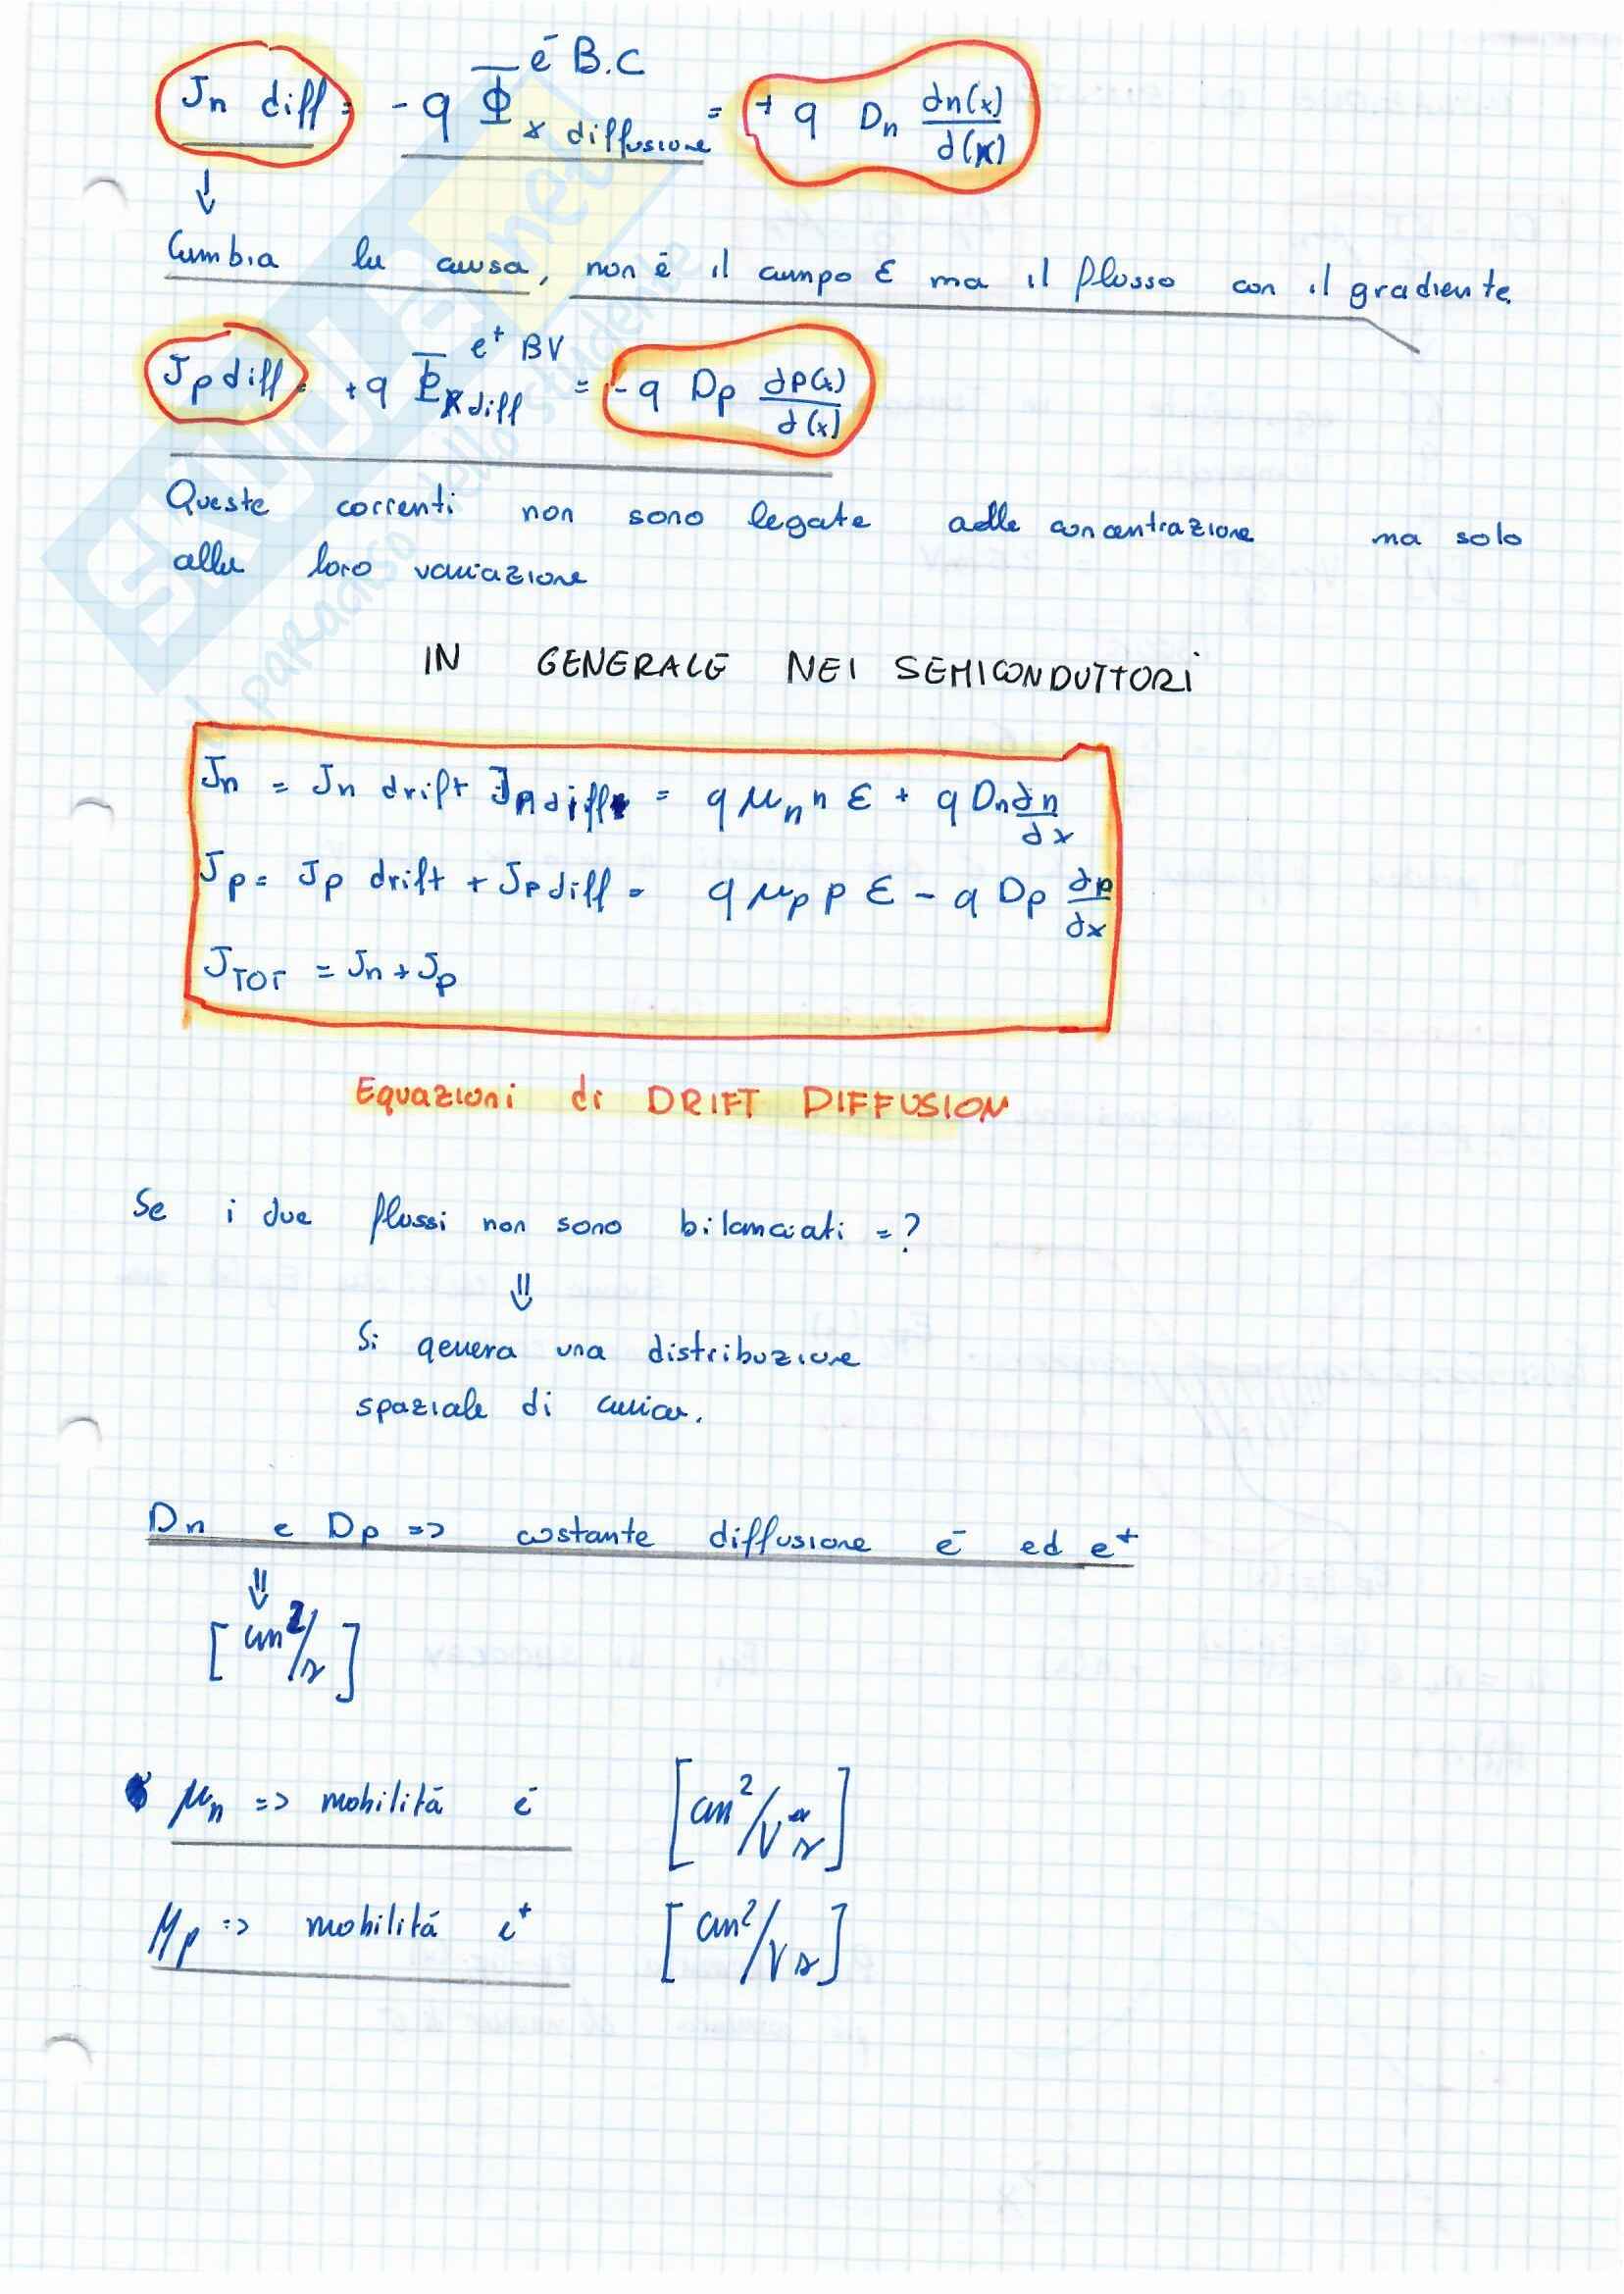 Jn diff = - q Φ x diffusione e⁻ B.C = + q Dn dn(x)/d(x)
↓
Cambia la causa, non è il campo ε ma il flusso con il gradiente.
Jp diff = +q Φ x diff e⁺ BV = - q Dp dp(x)/d(x)
Queste correnti non sono legate alle concentrazione ma solo
alla loro variazione
IN GENERALE NEI SEMICONDUTTORI
Jn = Jn drift Jn diff = q μn n ε + q Dn dn/dx
Jp = Jp drift + Jp diff = q μp p ε - q Dp dp/dx
JTOT = Jn + Jp
Equazioni di DRIFT DIFFUSION
Se i due flussi non sono bilanciati =?
⇓
Si genera una distribuzione
spaziale di
Dn e Dp => costante diffusione e⁻ ed e⁺
⇓
[cm²/s]
μn => mobilità e⁻ [cm²/Vs]
μp => mobilità e⁺ [cm²/Vs]
SKUOLA.net
il paradiso dello studente